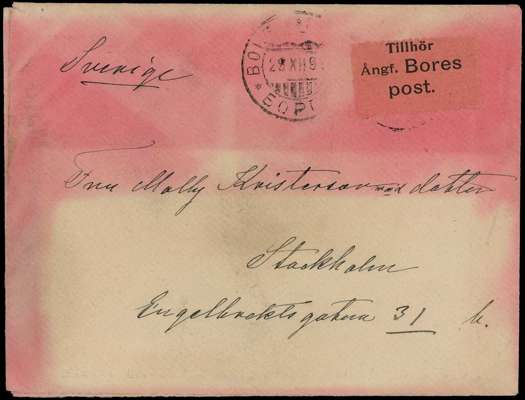 Sverige
28 XII 9
БОРГ
Tillhör
Ångf. Bores
post.
Fru Molly Kristersson med dotter
Stockholm
Engelbrektsgatan 31 b.